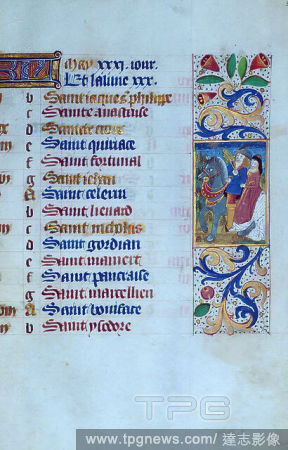 May xxxi. iour.
Et la lune xxx.
b Saint iaques s. philippe
c Sainte
d Sainte croix
e Saint quiriace
f Saint fortunat
g Saint iehan
A Saint celerin
b Saint lienard
c Saint nicholas
d Saint gordian
e Saint mamert
f Saint pancrase
g Saint marcellien
A Saint boniface
b Saint ysidore
TPG
www.tpgnews.com / 達志影像